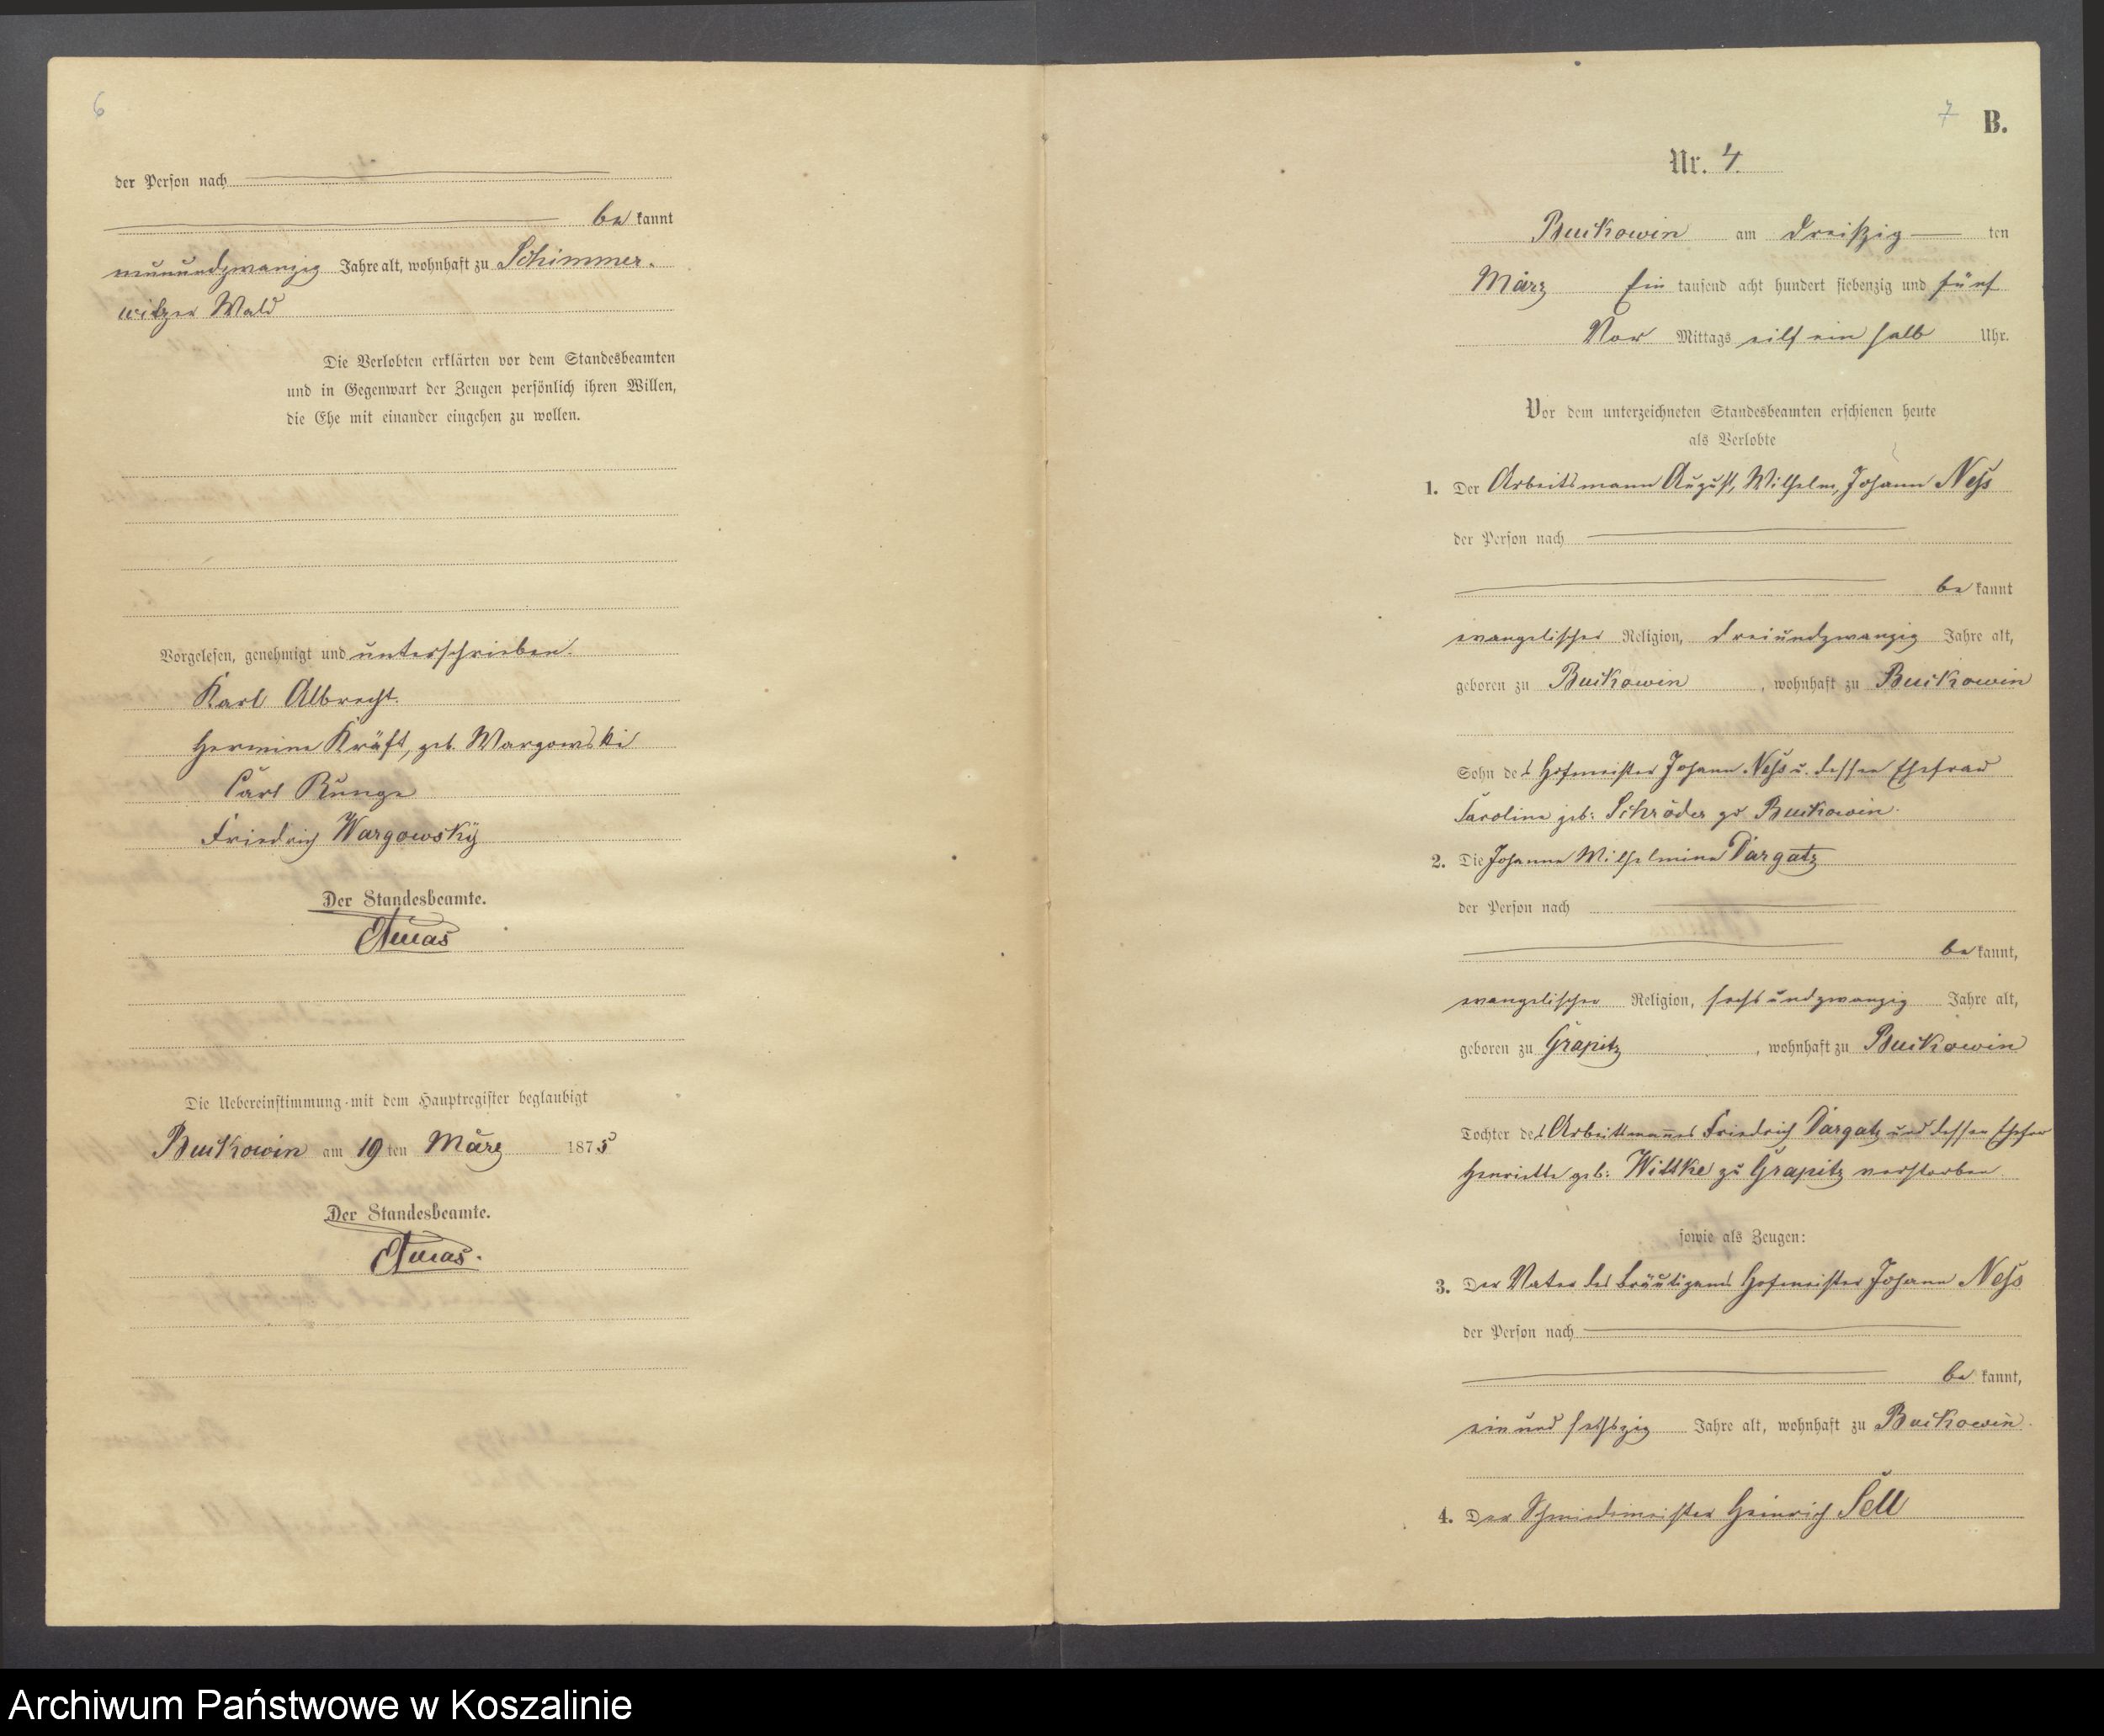 6
der Person nach
be kannt
neunundzwanzig Jahre alt, wohnhaft zu Schimmer-
witzer Wald
Die Verlobten erklärten vor dem Standesbeamten
und in Gegenwart der Zeugen persönlich ihren Willen,
die Ehe mit einander eingehen zu wollen.
Vorgelesen, genehmigt und unterschrieben.
Karl Albrecht.
Hermine Kräft, geb. Wargowski
Carl Runge
Friedrich Wargowsky
Der Standesbeamte.
Die Uebereinstimmung mit dem Hauptregister beglaubigt
Buckowin am 19 ten März 1875
Der Standesbeamte.
7 B.
Nr. 4.
Buckowin am dreißig ten
März Ein tausend acht hundert siebenzig und fünf
Vor Mittags eilf ein halb Uhr.
Vor dem unterzeichneten Standesbeamten erschienen heute
als Verlobte
1. Der Arbeitsmann August, Wilhelm, Johann Neß
der Person nach
be kannt
evangelischer Religion, dreiundzwanzig Jahre alt,
geboren zu Buckowin, wohnhaft zu Buckowin
Sohn des Hofmeister Johann Neß u. dessen Ehefrau
Caroline geb: Schröder zu Buckowin.
2. Die Johanne Wilhelmine Dargatz
der Person nach
be kannt,
evangelischer Religion, sechsundzwanzig Jahre alt,
geboren zu Grapitz, wohnhaft zu Buckowin
Tochter des Arbeitsmannes Friedrich Dargatz und dessen Ehefrau
Henriette geb: Wittke zu Grapitz verstorben.
sowie als Zeugen:
3. Der Vater des Bräutigams Hofmeister Johann Neß
der Person nach
be kannt,
ein und sechszig Jahre alt, wohnhaft zu Buckowin.
4. Der Schmiedemeister Heinrich Sell
Archiwum Państwowe w Koszalinie